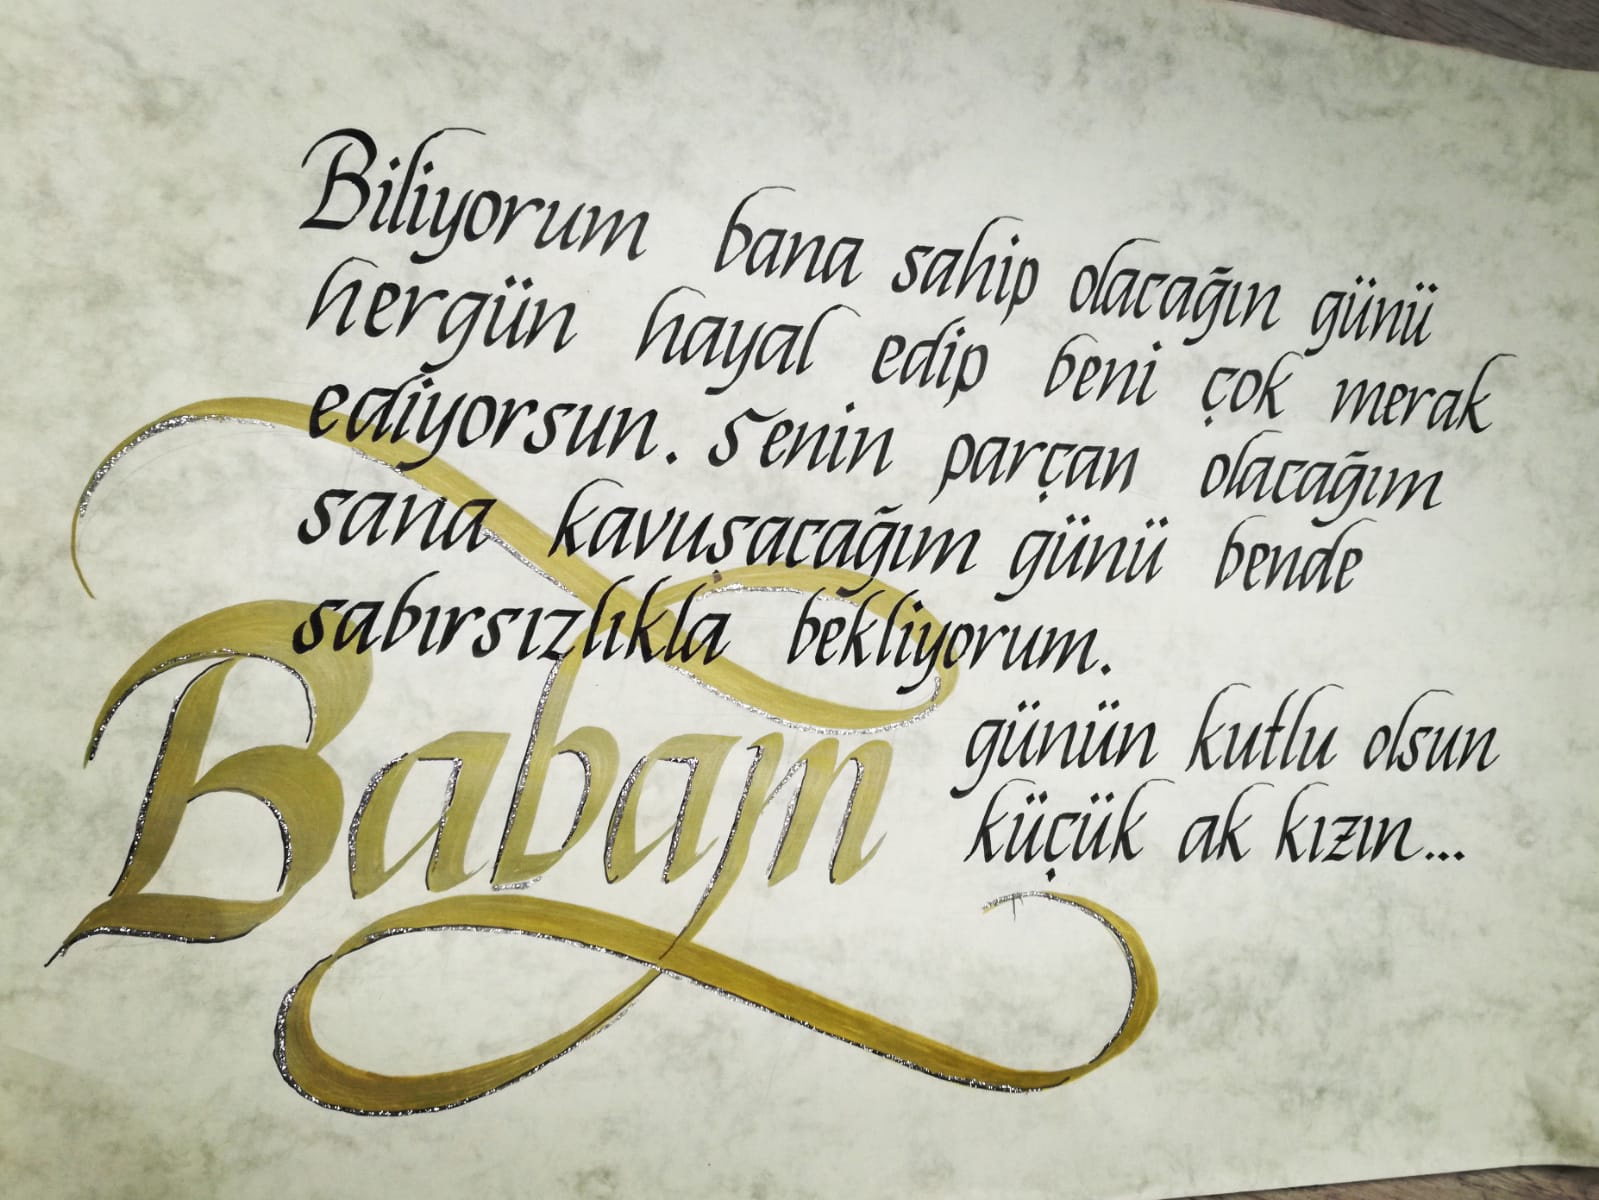 Biliyorum bana sahip olacağın günü
hergün hayal edip beni çok merak
ediyorsun. Senin parçan olacağım
sana kavuşacağım günü bende
sabırsızlıkla bekliyorum.
Babam
günün kutlu olsun
küçük ak kızın...